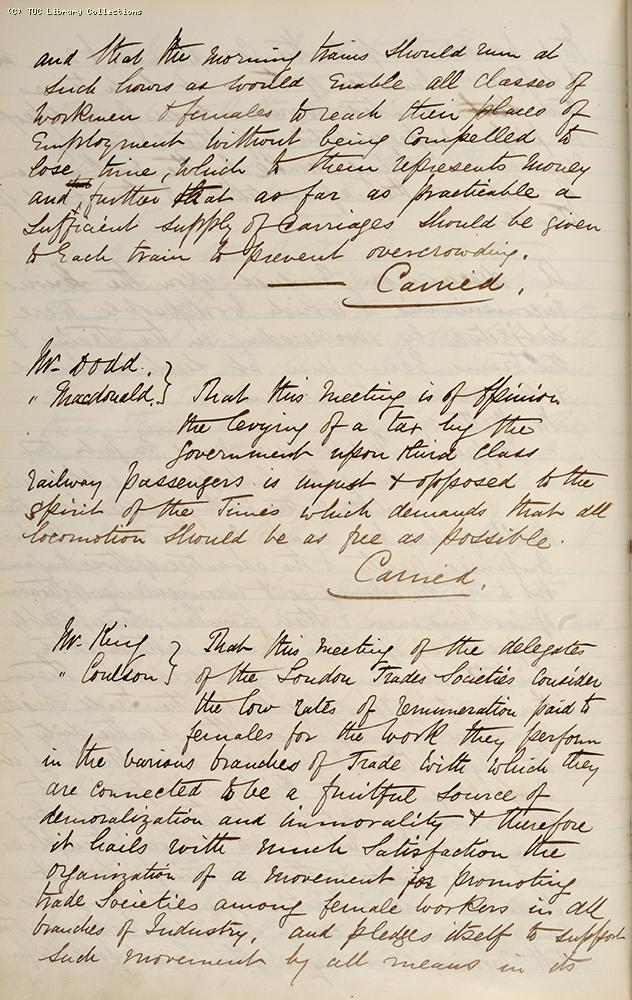 (C) TUC Library Collections
and that the morning trains should run at
such hours as would enable all classes of
workmen & females to reach their places of
Employment without being compelled to
lose time, which to them represents money
and, that further that as far as practicable a
sufficient supply of carriages should be given
to each train to prevent overcrowding.
Carried.
Mr. Dodd.
" Macdonald. } That this meeting is of opinion
the levying of a tax by the
Government upon third class
railway passengers is unjust & opposed to the
spirit of the Times which demands that all
locomotion should be as free as possible.
Carried.
Mr. King } That this meeting of the delegates
" Coulson } of the London Trades Societies consider
the low rates of remuneration paid to
females for the work they perform
in the various branches of Trade with which they
are connected to be a fruitful source of
demoralization and immorality & therefore
it hails with much satisfaction the
organization of a movement for promoting
trade Societies among female workers in all
branches of Industry, and pledges itself to support
such movement by all means in its